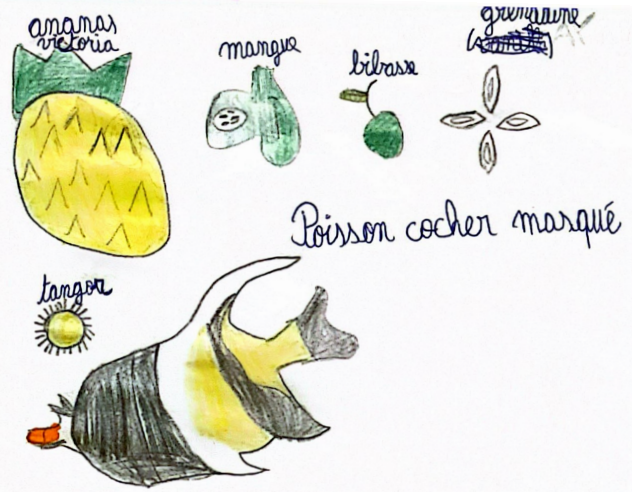 ananas
victoria
mangue
bibasse
grenadine
tangor
Poisson cocher masqué